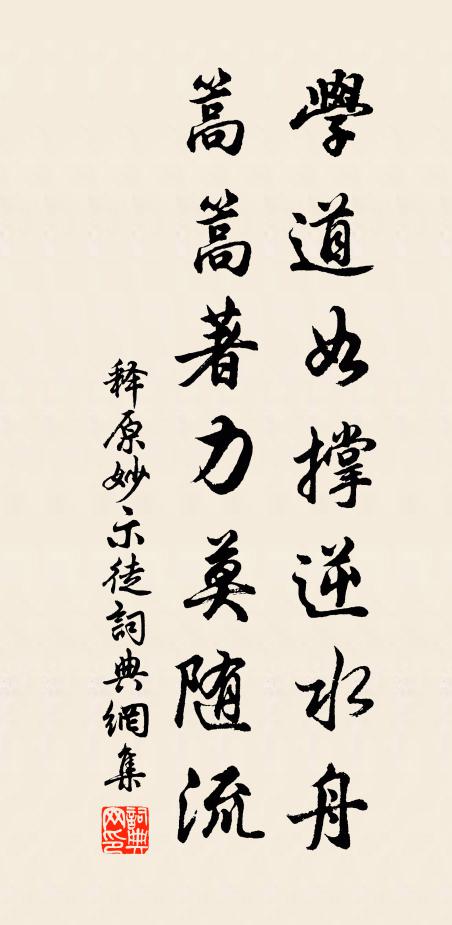 學道如撐逆水舟
篙篙著力莫随流
释原妙示徒詞典網集
詞典網印